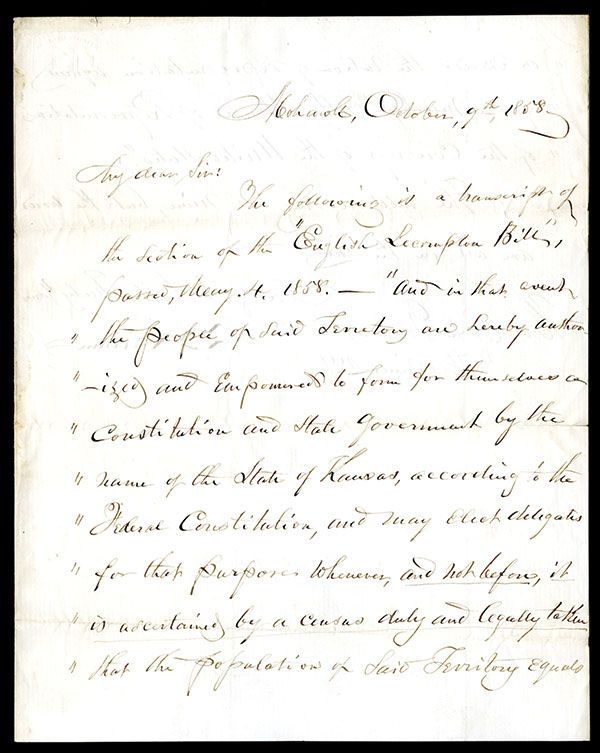 Mohawk, October, 9th, 1858.
My dear Sir:
The following is a transcript of
the section of the "English Lecompton Bill",
passed, May 4. 1858. — "And in that event,
" the people of said Territory are hereby author
" -ized and empowered to form for themselves a
" Constitution and State Government by the
" name of the State of Kansas, according to the
" Federal Constitution, and may elect delegates
" for that purpose whenever, and not before, it
" is ascertained by a census duly and legally taken
" that the population of said Territory equals